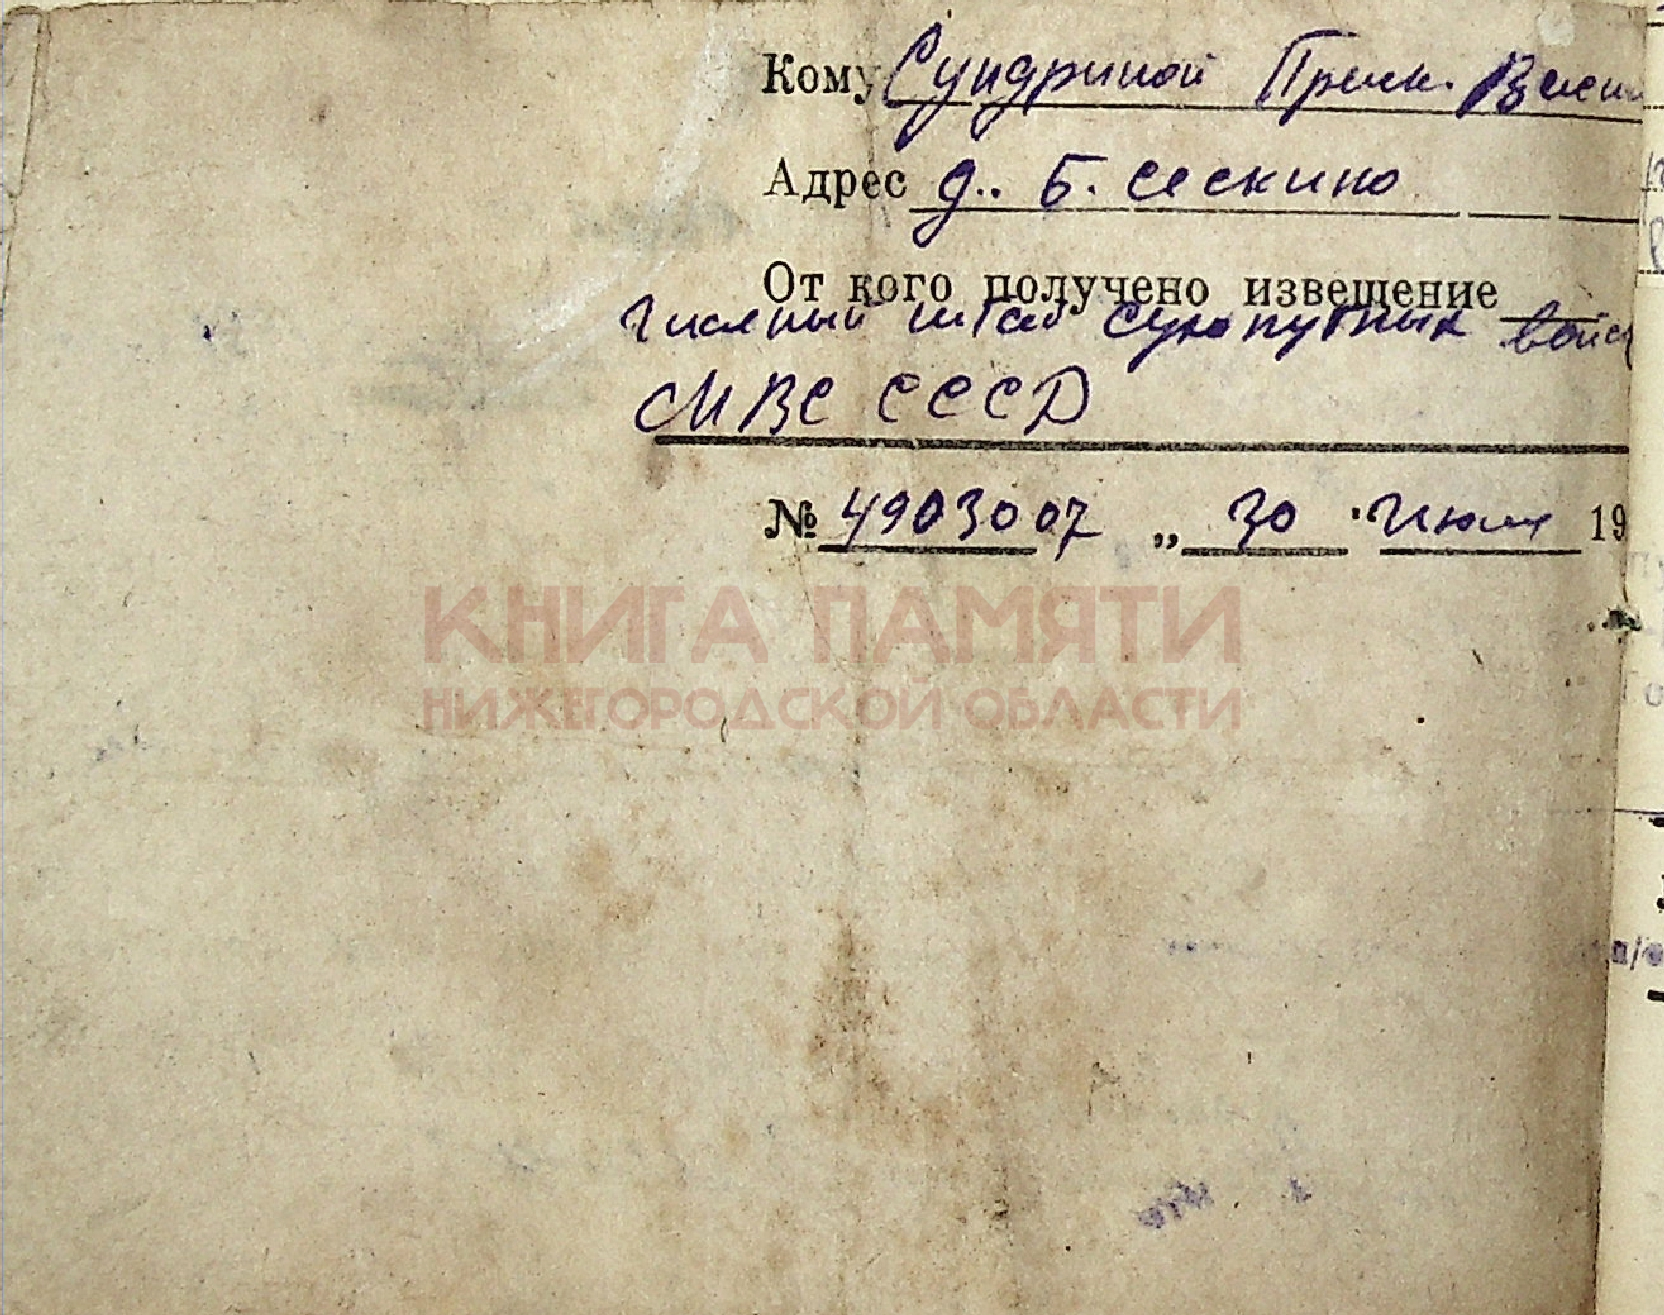 Кому Сундриной Праск. Васил
Адрес д.. Б. Сескино
От кого получено извещение
Главный штаб Сухопутных войск
МВС СССР
№ 4903007 „ 30 " Июля 19
КНИГА ПАМЯТИ
НИЖЕГОРОДСКОЙ ОБЛАСТИ